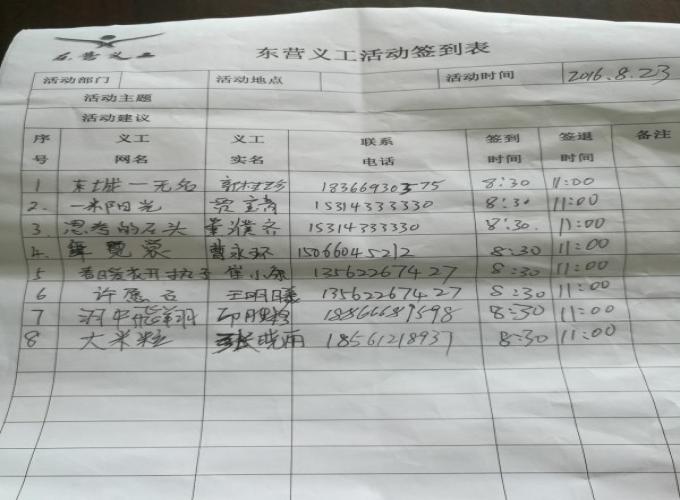 东营义工
东营义工活动签到表
活动部门 活动地点 活动时间 2016.8.23
活动主题
活动建议
序号 义工网名 义工实名 联系电话 签到时间 签退时间 备注
1 东城一无名 18366930575 8:30 11:00
2. 一米阳光 15314333330 8:30 11:00
3. 思考的石头 董濮齐 15314333330 8:30. 11:00
4. 曹永环 15066045212 8:30 11:00
5 崔小 13562267427 8:30 11:00
6 许愿石 王明 13562267427 8:30 11:00
7 河中飞翔 8:30 11:00
8 大米粒 张晓雨 18561218937 8:30 11:00